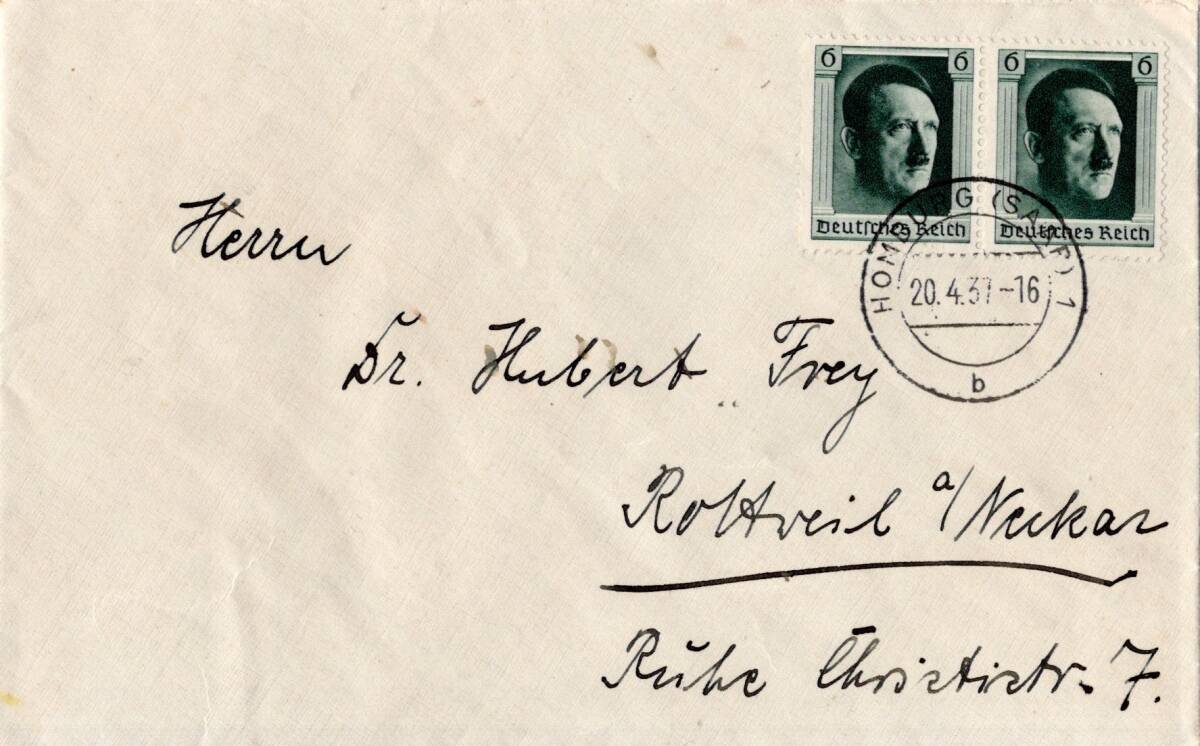 6 6 6 6
Deutsches Reich Deutsches Reich
HOMBURG (SAAR) 1
20.4.37-16
b
Herrn
Dr. Hubert Frey
Rottweil a/Neckar
7.